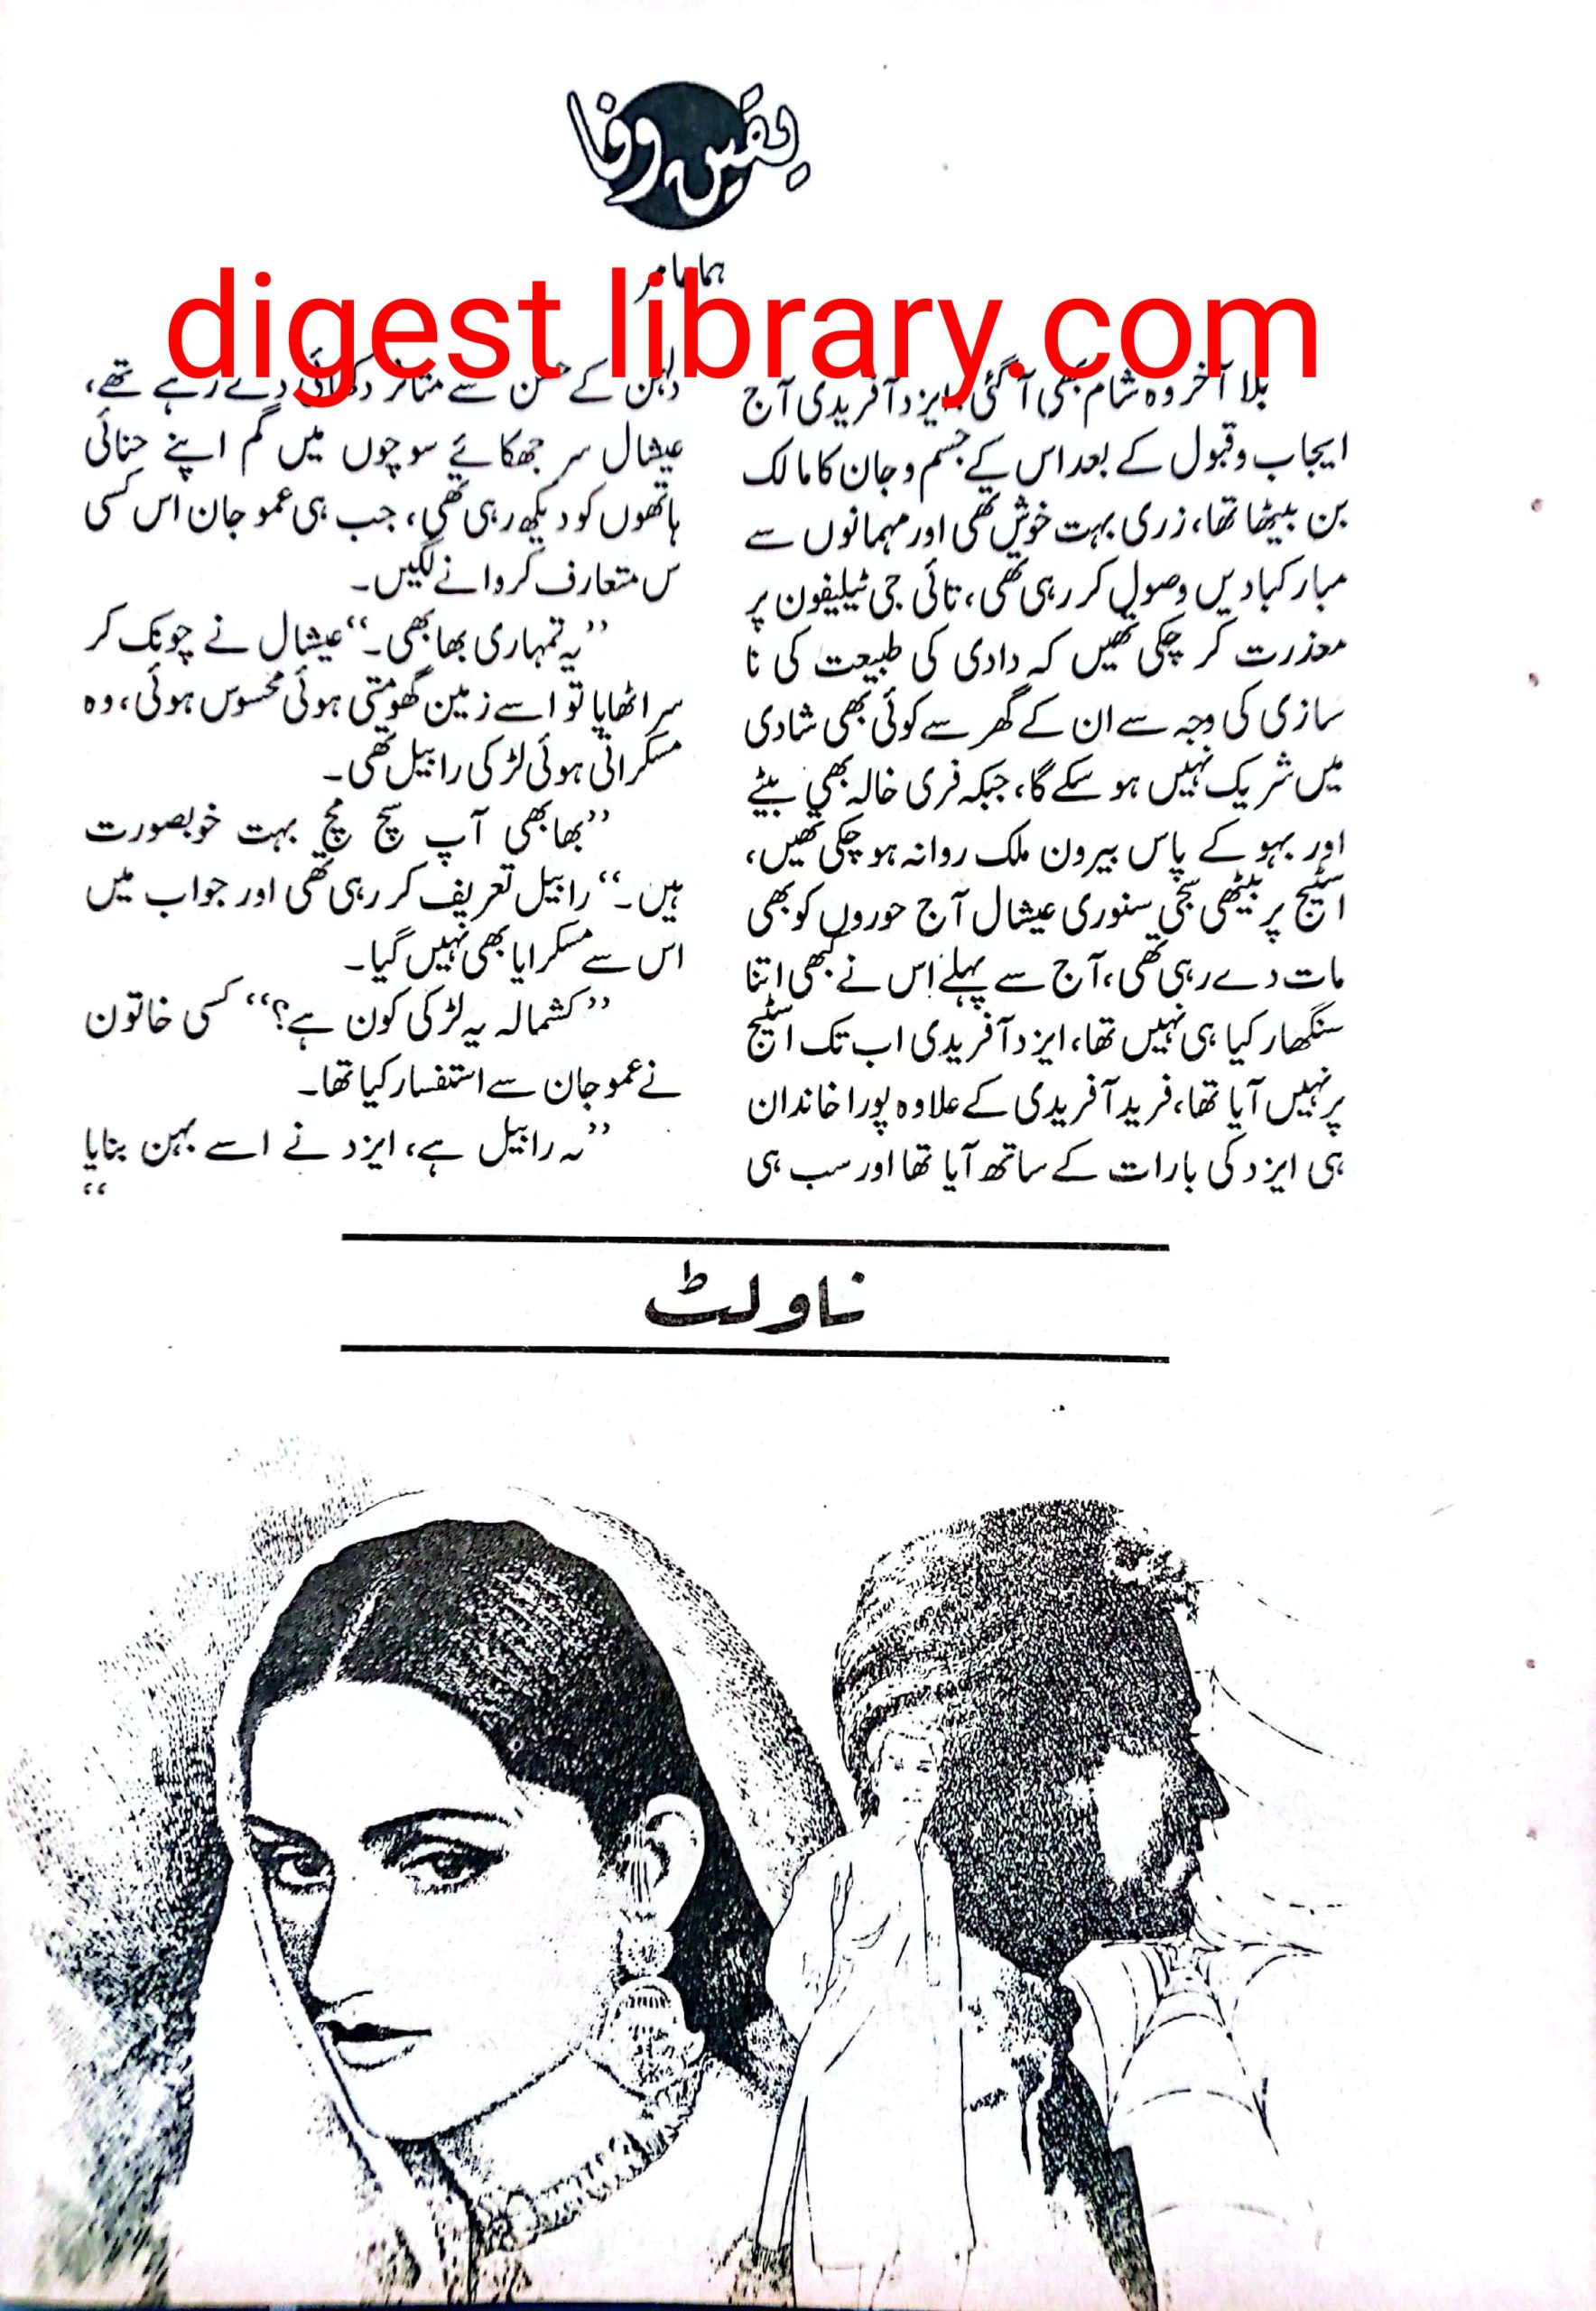 یقین وفا
ہما عامر
digest library.com
بلا آخر وہ شام بھی آ گئی، ایزد آفریدی آج
ایجاب و قبول کے بعد اس کے جسم و جان کا مالک
بن بیٹھا تھا، زری بہت خوش تھی اور مہمانوں سے
مبارکبادیں وصول کر رہی تھی، تائی جی ٹیلیفون پر
معذرت کر چکی تھیں کہ دادی کی طبیعت کی نا
سازی کی وجہ سے ان کے گھر سے کوئی بھی شادی
میں شریک نہیں ہو سکے گا، جبکہ فری خالہ بھی بیٹے
اور بہو کے پاس بیرون ملک روانہ ہو چکی تھیں،
اسٹیج پر بیٹھی سجی سنوری عیشال آج حوروں کو بھی
مات دے رہی تھی، آج سے پہلے اس نے کبھی اتنا
سنگھار کیا ہی نہیں تھا، ایزد آفریدی اب تک اسٹیج
پر نہیں آیا تھا، فرید آفریدی کے علاوہ پورا خاندان
ہی ایزد کی بارات کے ساتھ آیا تھا اور سب ہی
دلہن کے حسن سے متاثر دکھائی دے رہے تھے،
عیشال سر جھکائے سوچوں میں گم اپنے حنائی
ہاتھوں کو دیکھ رہی تھی، جب ہی عمو جان اس کسی
س متعارف کروانے لگیں۔
’’یہ تمہاری بھابھی۔‘‘ عیشال نے چونک کر
سر اٹھایا تو اسے زمین گھومتی ہوئی محسوس ہوئی، وہ
مسکراتی ہوئی لڑکی رابیل تھی۔
’’بھابھی آپ سچ مچ بہت خوبصورت
ہیں۔‘‘ رابیل تعریف کر رہی تھی اور جواب میں
اس سے مسکرایا بھی نہیں گیا۔
’’کشمالہ یہ لڑکی کون ہے؟‘‘ کسی خاتون
نے عمو جان سے استفسار کیا تھا۔
’’یہ رابیل ہے، ایزد نے اسے بہن بنایا
‘‘
ناولٹ